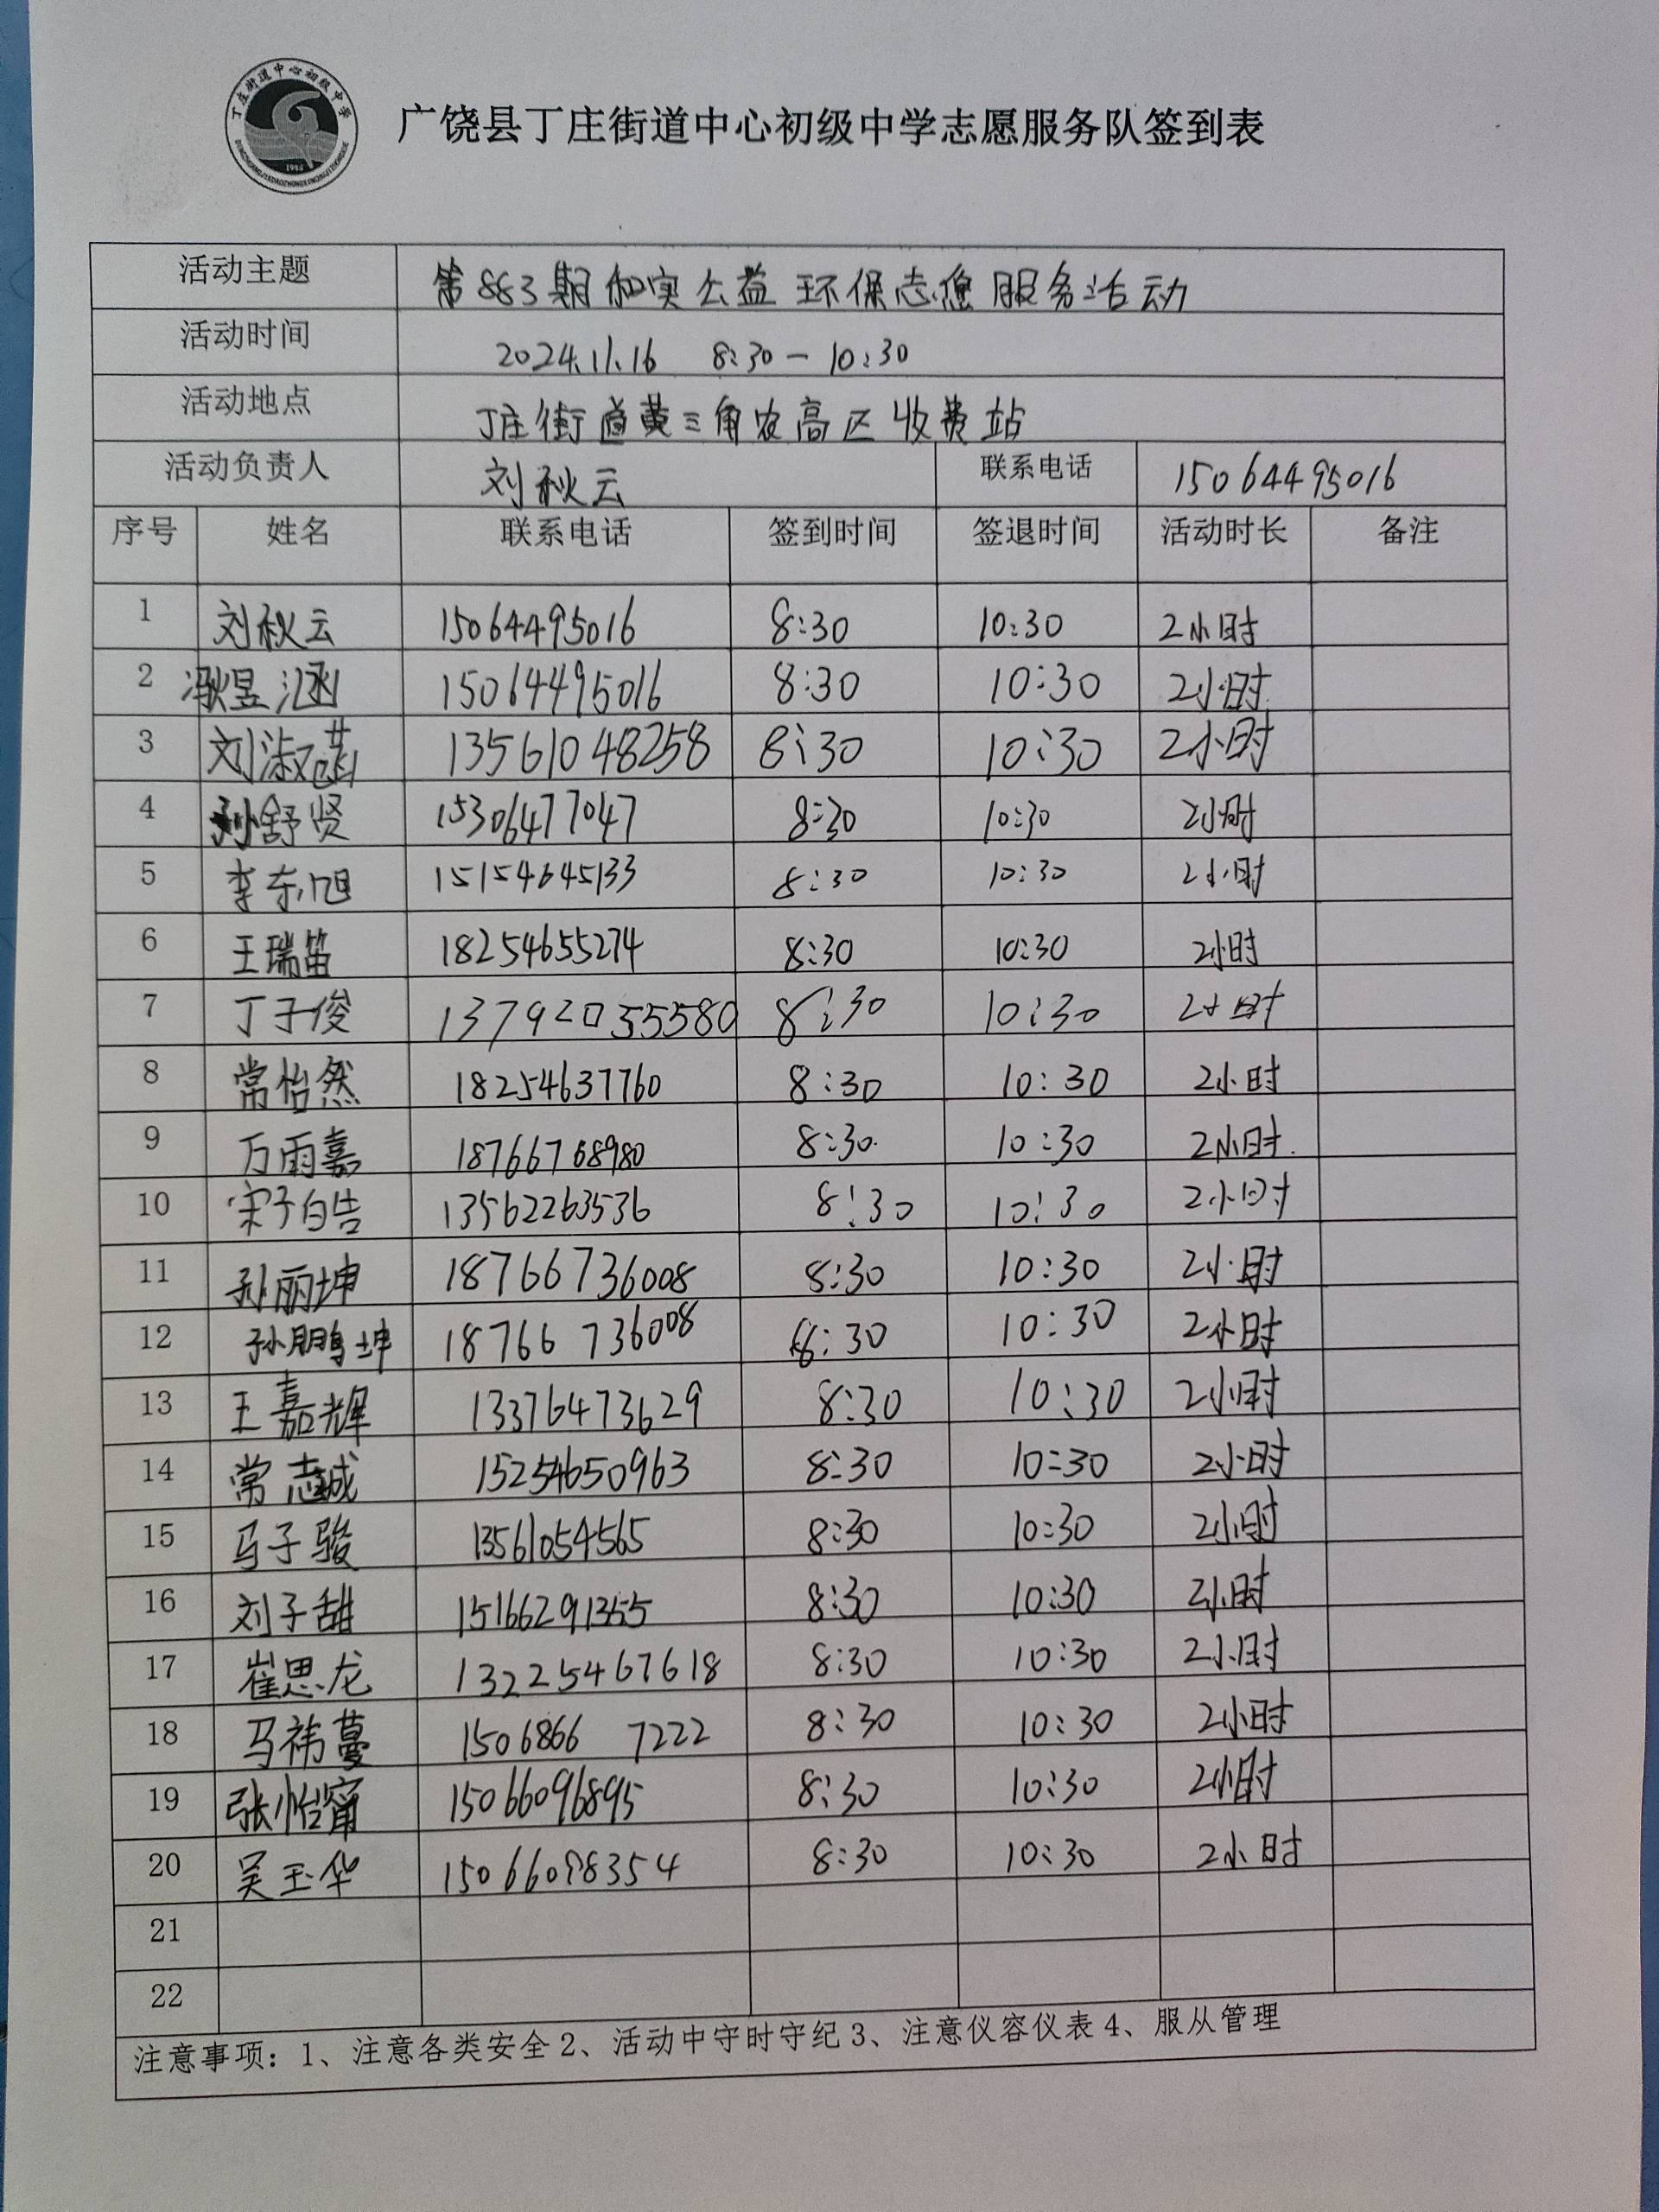 丁庄街道中心初级中学
1956
广饶县丁庄街道中心初级中学志愿服务队签到表
活动主题 第883期和实公益 环保志愿服务活动
活动时间 2024.11.16 8:30—10:30
活动地点 丁庄街道黄三角农高区收费站
活动负责人 刘秋云 联系电话 15064495016
序号 姓名 联系电话 签到时间 签退时间 活动时长 备注
1 刘秋云 15064495016 8:30 10:30 2小时
2 冯煜涵 15064495016 8:30 10:30 2小时
3 刘淑菡 13561048258 8:30 10:30 2小时
4 孙舒贤 15306477047 8:30 10:30 2小时
5 李东旭 15154645133 8:30 10:30 2小时
6 王瑞笛 18254655274 8:30 10:30 2小时
7 丁子俊 13792055580 8:30 10:30 2小时
8 常怡然 18254637760 8:30 10:30 2小时
9 万雨嘉 18766768980 8:30 10:30 2小时
10 宋子皓 13562263536 8:30 10:30 2小时
11 孙丽坤 18766736008 8:30 10:30 2小时
12 孙鹏坤 18766 736008 8:30 10:30 2小时
13 王嘉辉 13376473629 8:30 10:30 2小时
14 常志诚 15254650963 8:30 10:30 2小时
15 马子骏 13561054565 8:30 10:30 2小时
16 刘子甜 15166291355 8:30 10:30 2小时
17 崔思龙 13225467618 8:30 10:30 2小时
18 马祎蔓 1506866 7222 8:30 10:30 2小时
19 张怡甯 15066096895 8:30 10:30 2小时
20 吴玉华 15066098354 8:30 10:30 2小时
21
22
注意事项：1、注意各类安全2、活动中守时守纪3、注意仪容仪表4、服从管理